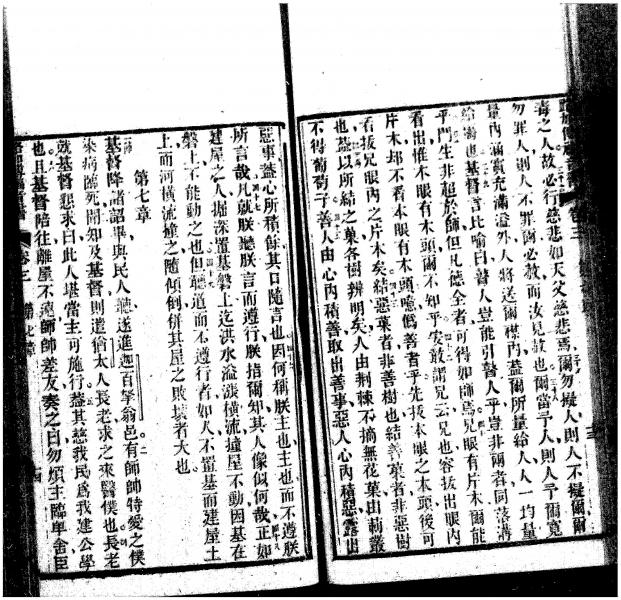 毒之人故必行慈悲如天父慈悲焉爾勿擬人則人不擬爾爾
勿罪人則人不罪爾必赦而汝見赦也爾當予人則人予爾寬
量內滿實充滿溢外人將送爾襟內蓋爾所量給人人一均量
給爾也基督言比喻曰瞽人豈能引瞽人乎豈非兩者同落溝
乎門生非超於師但凡德全者可得如師焉見兄眼有片木爾能
看出惟本眼有木頭爾不知乎安敢謂兄云兄也容拔出眼內
片木却不看本眼有木頭噫僞善者乎先拔本眼之木頭後可
看拔兄眼內之片木矣結惡菓者非善樹也結善菓者非惡樹
也蓋以所結之菓各樹辨明矣人由荆棘不摘無花菓由莿叢
不得葡萄子善人由心內積善取出善事惡人心內積惡露出
惡事蓋心所積餘其口隨言也因何稱朕主也主也而不遵朕
所言哉凡就朕聽朕言而遵行朕指爾知其人像似何哉正如
建屋之人掘深置基磐上迄洪水溢漲橫流撞屋不動因基在
磐上不能動之也但聽道而不遵行者如人不置基而建屋土
上而河橫流撞之隨傾倒併其屋之敗壞者大也
第七章
基督降諸詔畢與民人聽遂進迦百拿翁邑有師帥特愛之僕
染病臨死聞知及基督則遣猶太人長老求之來醫僕也長老
就基督懇求曰此人堪當主可施行蓋其慈我民為我建公學
也且基督陪往離屋不遠師帥差友奏之曰勿煩主臨卑舍臣